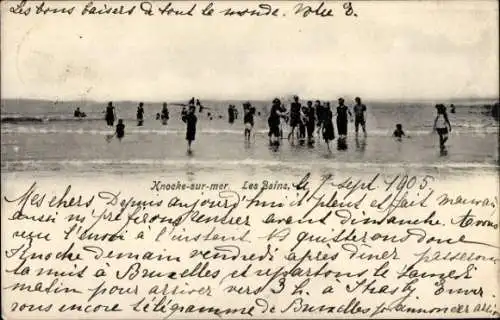 Les bons baisers à tout le monde. Votre E.
Knocke-sur-mer Les Bains, le 7 sept 1905
Mes chers Depuis aujourd'hui il pleut et fait mauvais
aussi n/s préférons rentrer avant dimanche. Avons
eu l'envoi à l'instant. N/s quitterons donc
Knocke demain vendredi après dîner passerons
la nuit à Bruxelles et repartons le Samedi
matin pour arriver vers 3 h. à Strasbg Env.
vous encore télégramme de Bruxelles pr annoncer